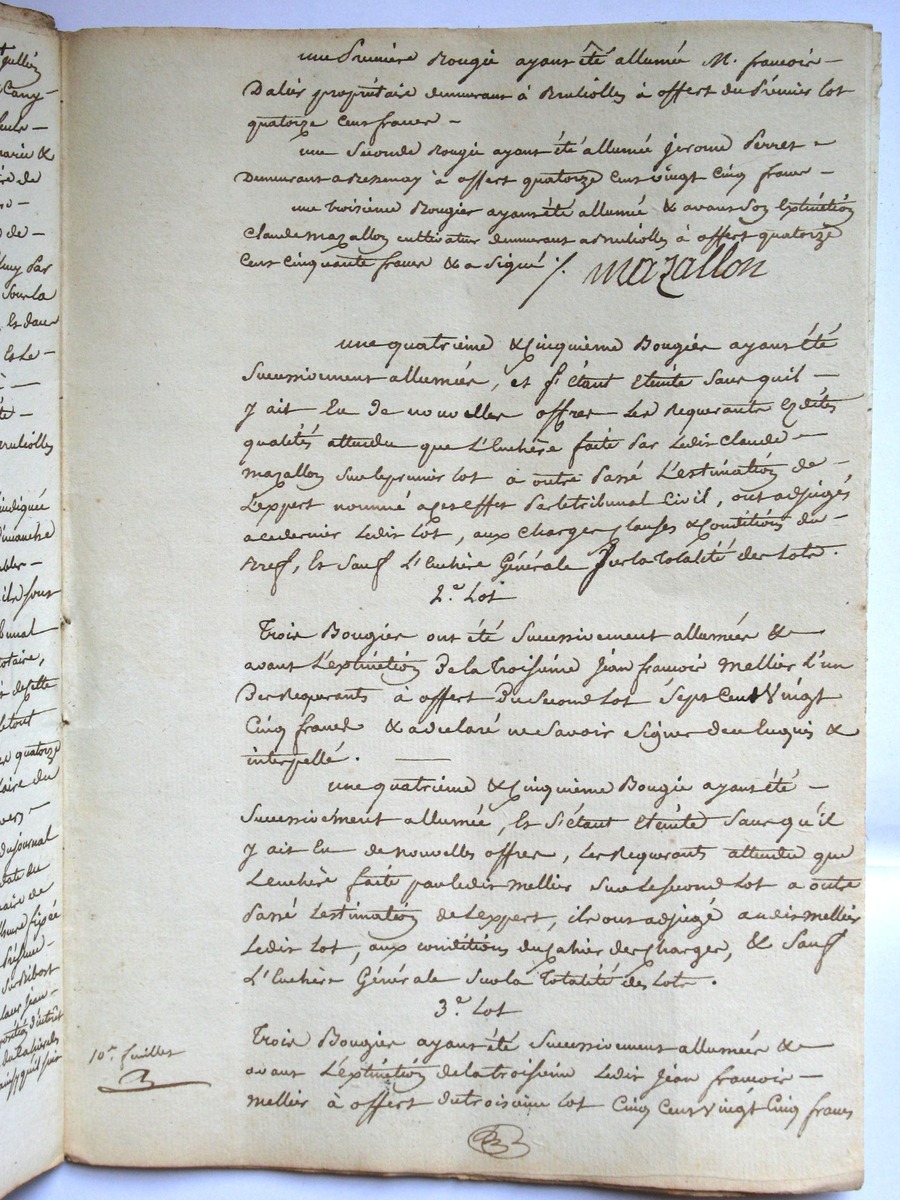 une Premiere Bougie ayant été allumée M. francois
Dalier propriétaire demeurant à Brulioles à offert du Premier lot
quatorze Cent francs
une Seconde Bougie ayant été allumée jerome Perret
Demeurant a Bessenay à offert quatorze Cent vingt Cinq francs
une troisieme Bougier ayant été allumé & avant Son Extinction
Claude mazallon cultivateur demeurant a Brulioles à offert quatorze
Cent Cinquante francs & a Signé ./. mazallon
une quatrieme & Cinquieme Bougies ayant été
Successivement allumées, et S'étant Eteinte Sans quil
y ait Eu De nouvelles offres Les Requerants Esdites
qualités attendu que L'Enchère faite Par Ledit Claude
mazallon Sur le premier Lot à outre Passé L'estimation de
L'expert nommé a cet effet Par le tribunal Civil, ont adjugés
a ce dernier Ledit Lot, aux Charges, Clauses & Conditions du
Bref, Et Sauf L'Enchère Générale Sur La Totalité des Lots.
2.e Lot
Trois Bougies ont été Successivement allumées &
avant L'extinction De La Troisieme Jean francois Mellier L'un
Des Requerants à offert Du Second Lot Sept Cent Vingt
Cinq francs & a declaré ne Savoir Signer De ce Enquis &
interpellé.
une quatrieme & Cinquieme Bougie ayant été
Successivement allumée, Et S'étant Eteinte Sans qu'il
y ait Eu de Nouvelles offres, Les Requerants attendu que
L'enchère faite par Ledit Mellier Sur Le Second Lot a outre
Passé L'estimation de L'expert, ils ont adjugé audit Mellier
Ledit Lot, aux conditions du Cahier des Charges, & Sauf
L'Enchère Générale Sur La Totalité des Lots.
3.e Lot
Trois Bougies ayant été Successivement allumées &
avant L'extinction de la troisieme Ledit Jean francois
Mellier à offert du troisieme Lot Cinq Cent Vingt Cinq francs
10.e feuillet